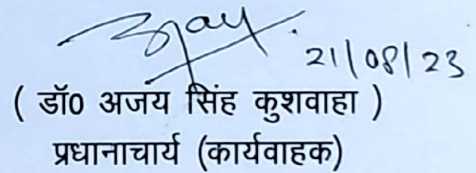 21/08/23
( डॉ0 अजय सिंह कुशवाहा )
प्रधानाचार्य (कार्यवाहक)